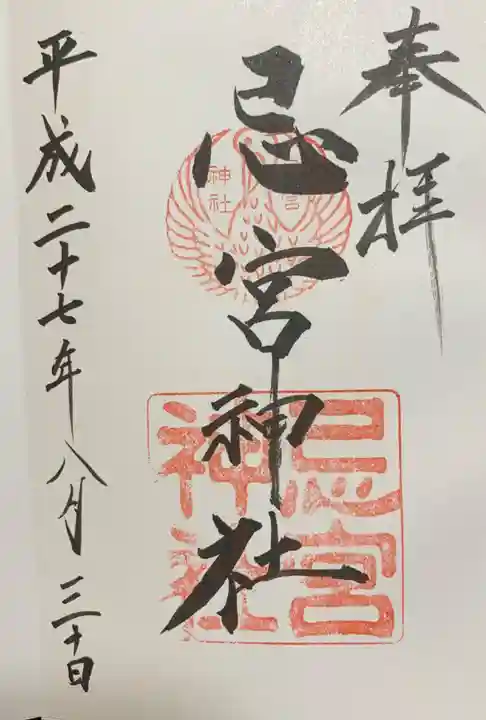 奉拝
忌宮神社
平成二十七年八月三十日
忌宮
神社
宮
神社